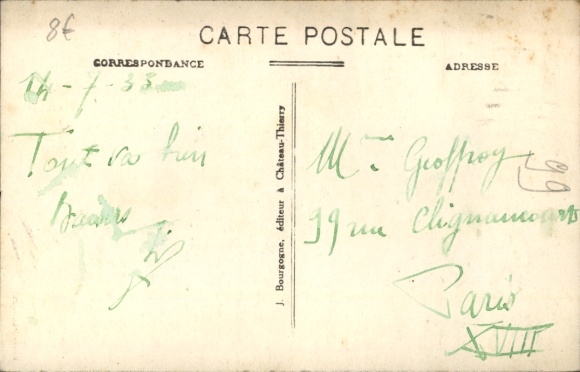 8€
CARTE POSTALE
CORRESPONDANCE
ADRESSE
14-7-33
Tout va bien
Baisers
J. Bourgogne, éditeur à Château-Thierry
Mme Geoffroy
99
39 rue Clignancourt
Paris
XVIII